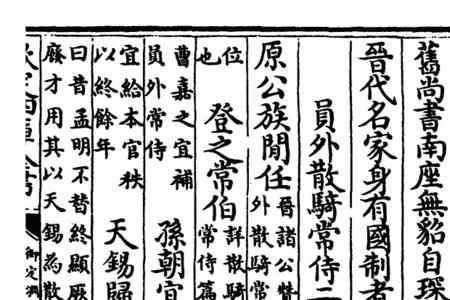 舊尚書南座無貂自琛
晉代名家身有國制者
員外散騎常侍二
原公族閒任
晉諸公贊
外散騎常
位
也
登之常伯
詳散騎
常侍篇
曹嘉之宜補
員外常侍
孫朝宜
宜給本官秩
以終餘年
天錫歸
曰昔孟明不替終顯厥
廢才用其以天錫為散
御定淵